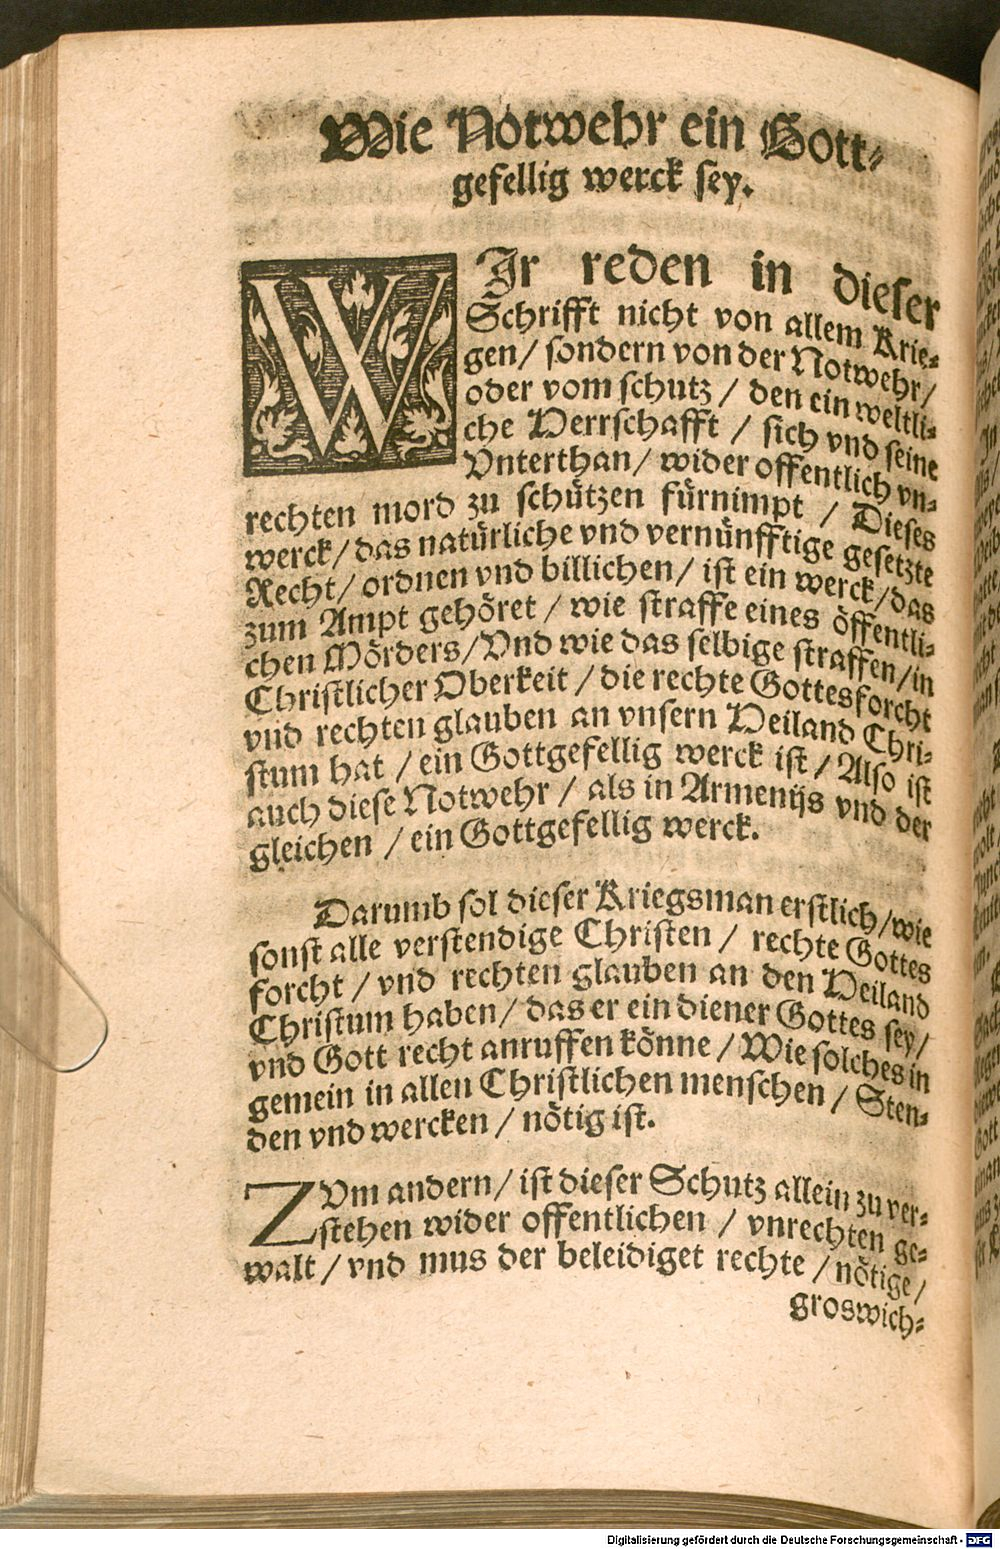 Wie Notwehr ein Gott-
gefellig werck sey.
WJr reden in dieser
Schrifft nicht von allem Krie-
gen/ sondern von der Notwehr/
oder vom schutz / den ein weltli-
che Herrschafft / sich vnd seine
Vnterthan/ wider offentlich vn-
rechten mord zu schützen fürnimpt / Dieses
werck/ das natürliche vnd vernünfftige gesetzte
Recht/ ordnen vnd billichen/ ist ein werck/das
zum Ampt gehöret / wie straffe eines öffentli-
chen Mörders/Vnd wie das selbige straffen/in
Christlicher Oberkeit / die rechte Gottesforcht
vnd rechten glauben an vnsern Heiland Chri-
stum hat / ein Gottgefellig werck ist / Also ist
auch diese Notwehr / als in Armenijs vnd der
gleichen / ein Gottgefellig werck.
Darumb sol dieser Kriegsman erstlich/wie
sonst alle verstendige Christen / rechte Gottes
forcht / vnd rechten glauben an den Heiland
Christum haben/ das er ein diener Gottes sey/
vnd Gott recht anruffen könne / Wie solches in
gemein in allen Christlichen menschen / Sten-
den vnd wercken / nötig ist.
ZVm andern/ ist dieser Schutz allein zu ver-
stehen wider offentlichen / vnrechten ge-
walt / vnd mus der beleidiget rechte / nötige /
groswich-
Digitalisierung gefördert durch die Deutsche Forschungsgemeinschaft - DFG